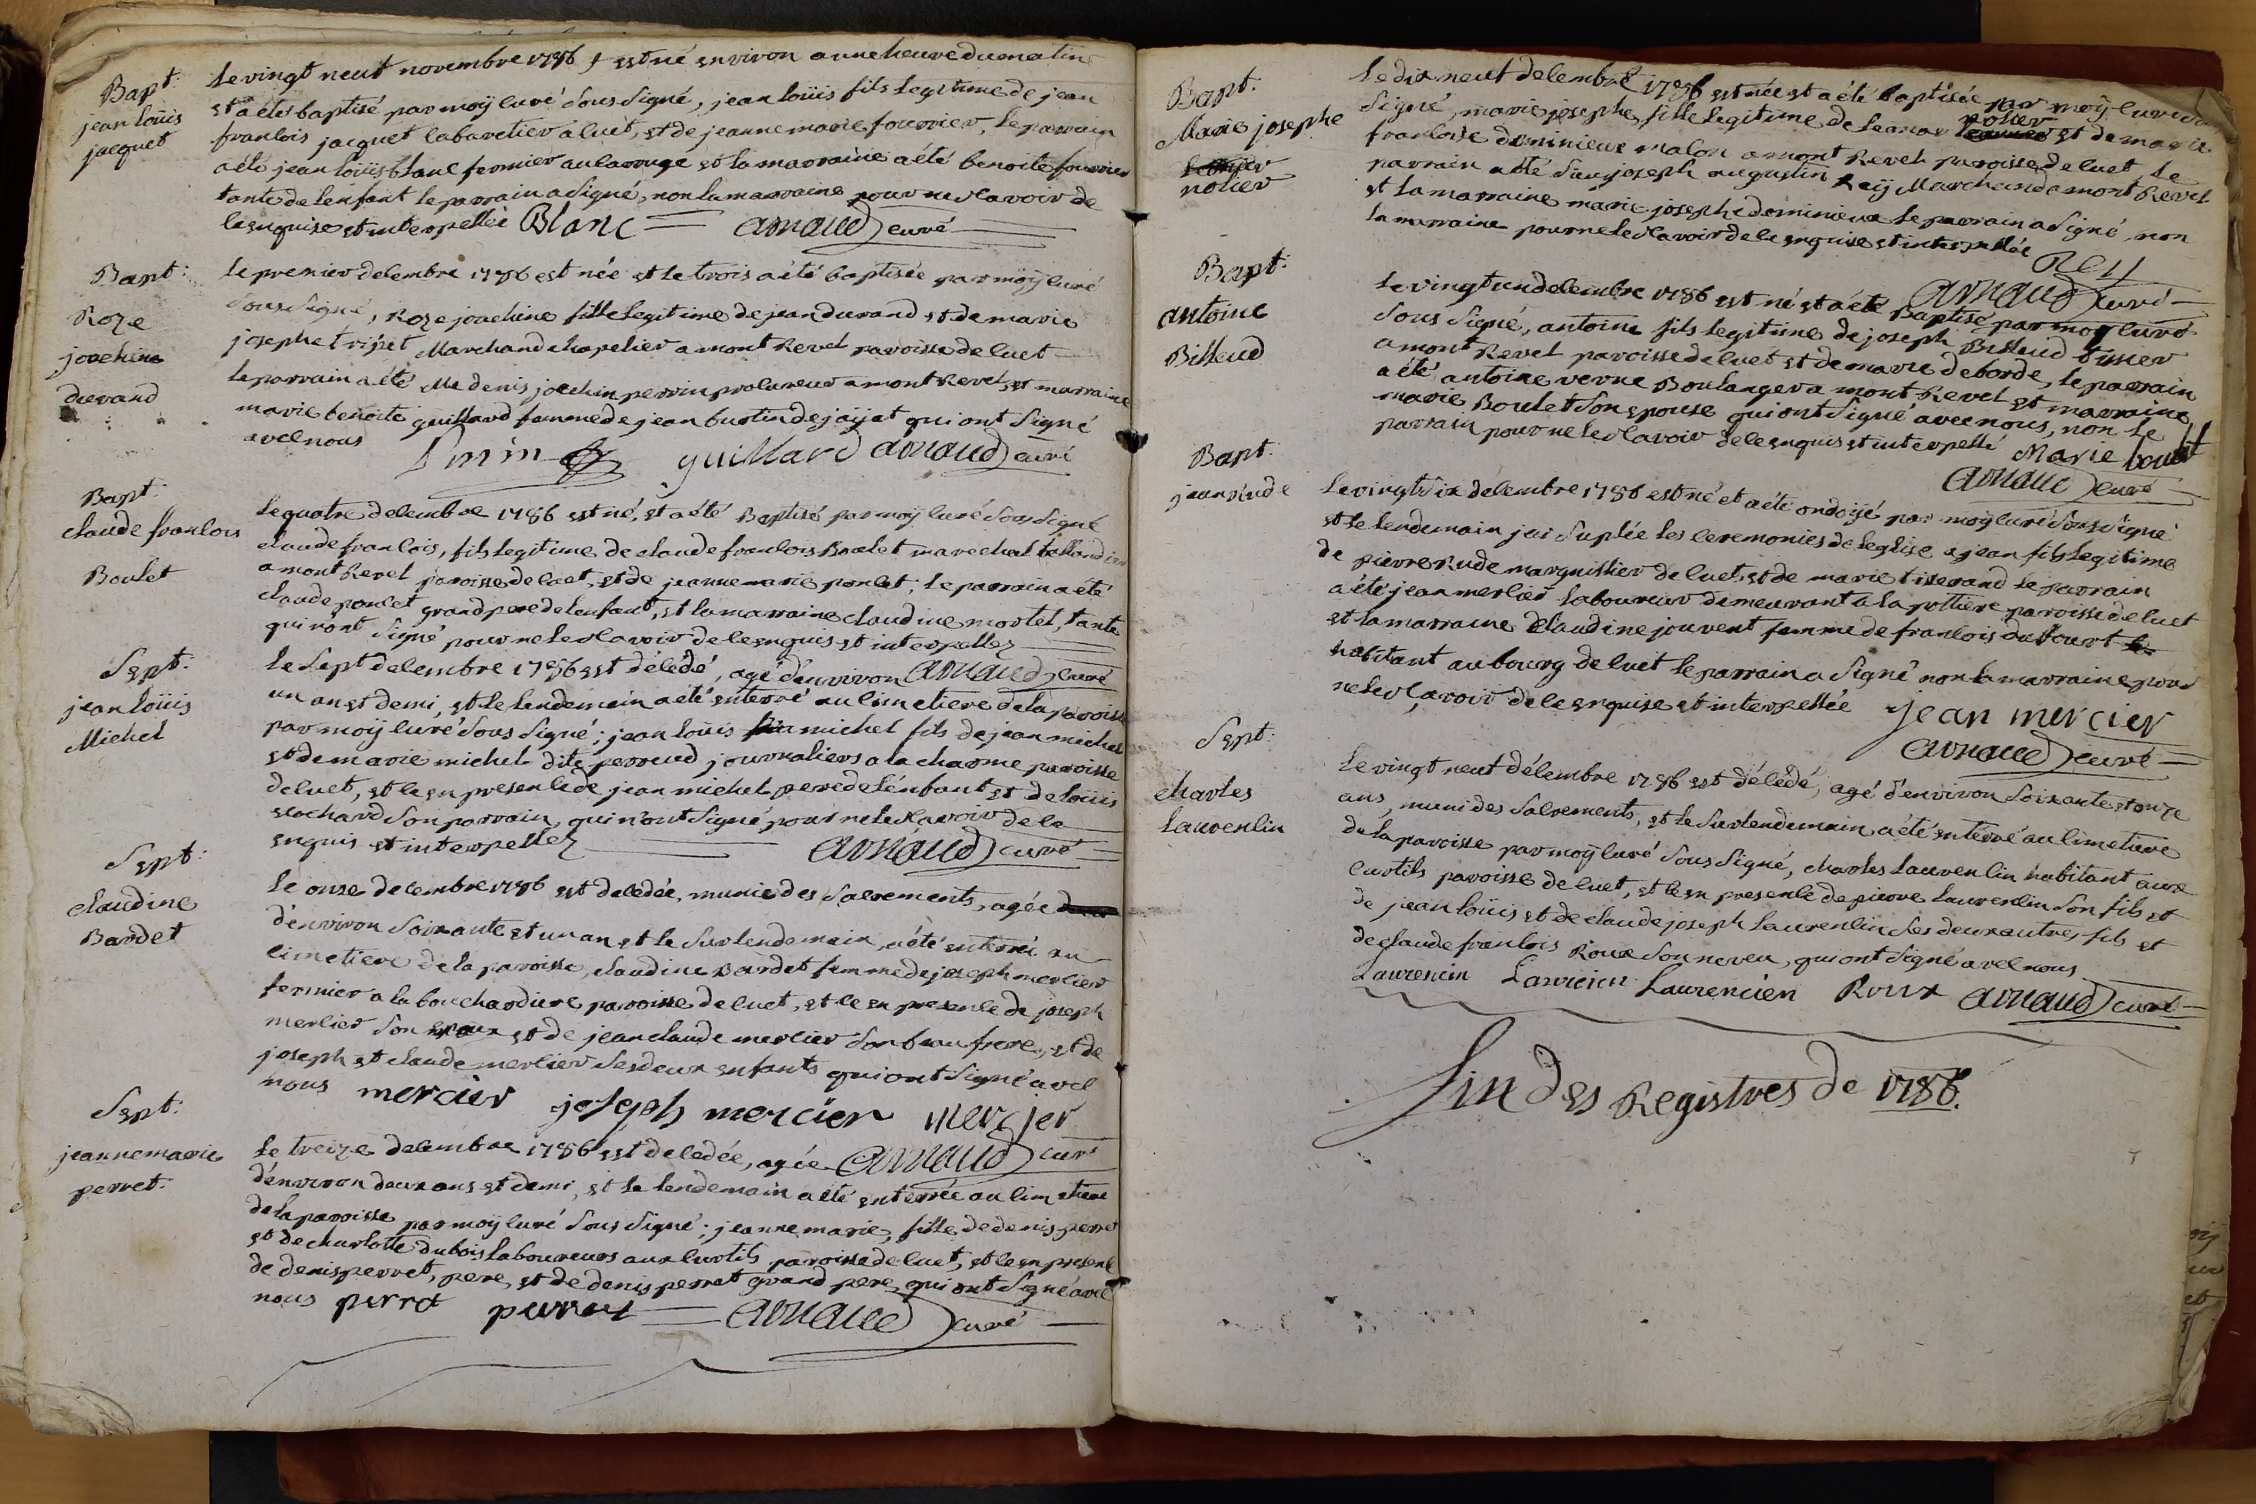 Bapt:
jean loüis
jacquet
Le vingt neuf novembre 1786 est né environ a une heure du matin
et a été baptisé par moÿ curé sous signé, jean loüis fils legitime de jean
francois jacquet cabaretier à cuet, et de jeanne marie fourrier, le parrain
a été jean loüis blanc fermier au carouge et la marraine a été benoite fourrier
tante de lenfant le parrain a signé, non la marraine pour ne scavoir de
ce enquise et interpellée Blanc arnaud curé
Bapt:
Roze
joachine
durand
Le premier decembre 1786 est née et le trois a été baptisée par moÿ curé
sous signé, Roze joachine fille legitime de jean durand et de marie
josephe tripet Marchand chapelier a mont Revel paroisse de cuet
le parrain a été Me denis joachin perrin procureur a mont Revel, et marraine
marie benoite guillard femme de jean burtin de jaÿat qui ont signé
avec nous Perrin guillard arnaud curé
Bapt:
claude francois
Boulet
Le quatre decembre 1786 est né, et a été Baptisé par moÿ curé sous signé
claude francois, fils legitime de claude francois Boulet marechal tallandier
a mont Revel paroisse de cuet, et de jeanne marie poncet, le parrain a été
claude poncet grand pere de lenfant, et la marraine claudine mortel, tante
qui n'ont signé pour ne le scavoir de ce enquis et interpellez
arnaud curé
Sept:
jean loüis
Michel
Le sept decembre 1786 est décédé, agé d'environ
un an et demi, et le lendemain a été enterré au cimetiere de la paroisse
par moÿ curé sous signé; jean loüis michel fils de jean michel
et de marie michel dite perraud journaliers a la charme paroisse
de cuet, et ce en presence de jean michel pere de lénfant et de loüis
cochard son parrain, qui n'ont signé pour ne le scavoir de ce
enquis et interpellez arnaud curé
Sept:
claudine
Bardet
Le onse decembre 1786 est decedée, munie des sacrements, agée
d'environ soixante et un an et le surlendemain a été enterré au
cimetiere de la paroisse, claudine Bardet femme de joseph mercier
fermier a la bouchardiere paroisse de cuet, et ce en presence de joseph
mercier son epoux et de jean claude mercier son beau frere, et de
joseph et claude mercier ses deux enfants qui ont signé avec
nous mercier joseph mercier mercier
arnaud curé
Sept:
jeanne marie
perret:
Le treize decembre 1786 est decedée, agée
d'environ deux ans et demi, et le lendemain a été enterrée au cimetiere
de la paroisse par moÿ curé sous signé; jeanne marie, fille de denis perret
et de charlotte dubois laboureurs aux curtils paroisse de cuet, et ce en presence
de denis perret, pere, et de denis perret grand pere qui ont signé avec
nous perret perret arnaud curé
Bapt:
Marie josephe
notier
Le dix neuf decembre 1786 est née et a été baptisée par moÿ curé sous
signé, marie josephe, fille legitime de leonar notier et de marie
francoise dominieux maçon a mont Revel paroisse de cuet le
parrain a été Sieur joseph augustin Reÿ Marchand a mont Revel
et la marraine marie josephe dominieux le parrain a signé non
la marraine pour ne le scavoir de ce enquise et interpellée
Rey
arnaud curé
Bapt:
antoine
Billiud
Le vingt un decembre 1786 est né et a été Baptisé par moÿ curé
sous signé, antoine fils legitime de joseph Billiud tissier
a mont Revel paroisse de cuet et de marie deborde, le parrain
a été antoine verne Boulanger a mont Revel et marraine
marie Boulet son epouse qui ont signé avec nous, non le
parrain pour ne le scavoir de ce enquis et interpellé Marie boulet
arnaud curé
Bapt:
jean rude
Le vingt six decembre 1786 est né et a été ondoÿé par moÿ curé sous signé
et le lendemain jai suplée les ceremonies de leglise a jean fils legitime
de pierre Rude marguillier de cuet, et de marie tisserand le parrain
a été jean mercier laboureur demeurant a la pottiere paroisse de cuet
et la marraine claudine jouvent femme de francois dufourt
habitant au bourg de cuet le parrain a signé non la marraine pour
ne le scavoir de ce enquise et interpellée jean mercier
arnaud curé
Sept:
charles
Laurencin
Le vingt neuf décembre 1786 est décédé, agé d'environ soixante et onze
ans, muni des sacrements, et le surlendemain a été enterré au cimetiere
de la paroisse par moÿ curé sous signé, charles Laurencin habitant aux
curtils paroisse de cuet, et ce en presence de pierre Laurencin son fils et
de jean loüis et de claude joseph laurencin ses deux autres fils et
de claude francois Roux son neveu, qui ont signé avec nous
Laurencin Laurencin Laurencien Roux arnaud curé
Fin des Registres de 1786.